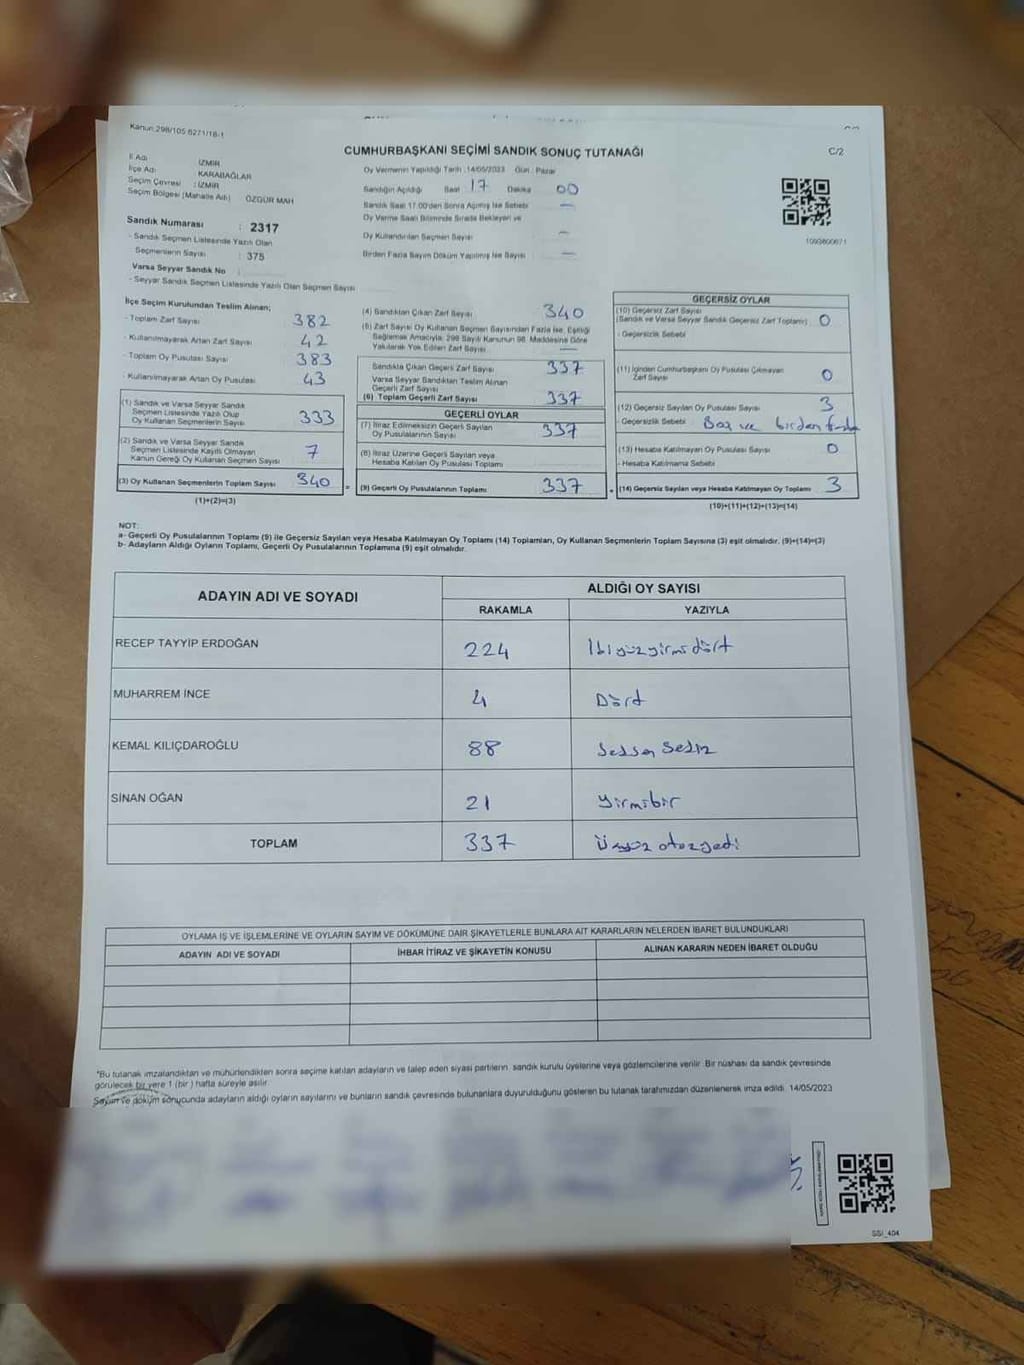 Kanun:298/105 6271/18-1
CUMHURBAŞKANI SEÇİMİ SANDIK SONUÇ TUTANAĞI
C/2
İl Adı : İZMİR
İlçe Adı : KARABAĞLAR
Seçim Çevresi : İZMİR
Seçim Bölgesi (Mahalle Adı) ÖZGÜR MAH
Sandık Numarası : 2317
- Sandık Seçmen Listesinde Yazılı Olan
Seçmenlerin Sayısı : 375
Varsa Seyyar Sandık No :
- Seyyar Sandık Seçmen Listesinde Yazılı Olan Seçmen Sayısı
Oy Vermenin Yapıldığı Tarih :14/05/2023 Gün : Pazar
Sandığın Açıldığı Saat 17 Dakika 00
Sandık Saat 17.00'den Sonra Açılmış İse Sebebi —
Oy Verme Saati Bitiminde Sırada Bekleyen ve
Oy Kullandırılan Seçmen Sayısı —
Birden Fazla Sayım Döküm Yapılmış İse Sayısı —
1093800671
İlçe Seçim Kurulundan Teslim Alınan;
- Toplam Zarf Sayısı 382
- Kullanılmayarak Artan Zarf Sayısı 42
- Toplam Oy Pusulası Sayısı 383
- Kullanılmayarak Artan Oy Pusulası 43
(1) Sandık ve Varsa Seyyar Sandık
Seçmen Listesinde Yazılı Olup
Oy Kullanan Seçmenlerin Sayısı 333
(2) Sandık ve Varsa Seyyar Sandık
Seçmen Listesinde Kayıtlı Olmayan
Kanun Gereği Oy Kullanan Seçmen Sayısı 7
(3) Oy Kullanan Seçmenlerin Toplam Sayısı 340
(1)+(2)=(3)
(4) Sandıktan Çıkan Zarf Sayısı 340
(5) Zarf Sayısı Oy Kullanan Seçmen Sayısından Fazla İse, Eşitliği
Sağlamak Amacıyla; 298 Sayılı Kanunun 98. Maddesine Göre
Yakılarak Yok Edilen Zarf Sayısı —
Sandıkta Çıkan Geçerli Zarf Sayısı 337
Varsa Seyyar Sandıktan Teslim Alınan
Geçerli Zarf Sayısı
(6) Toplam Geçerli Zarf Sayısı 337
GEÇERLİ OYLAR
(7) İtiraz Edilmeksizin Geçerli Sayılan
Oy Pusulalarının Sayısı 337
(8) İtiraz Üzerine Geçerli Sayılan veya
Hesaba Katılan Oy Pusulası Toplamı
= (9) Geçerli Oy Pusulalarının Toplamı 337
GEÇERSİZ OYLAR
(10) Geçersiz Zarf Sayısı
(Sandık ve Varsa Seyyar Sandık Geçersiz Zarf Toplamı) 0
- Geçersizlik Sebebi
(11) İçinden Cumhurbaşkanı Oy Pusulası Çıkmayan
Zarf Sayısı 0
(12) Geçersiz Sayılan Oy Pusulası Sayısı 3
- Geçersizlik Sebebi Boş ve birden fazla
(13) Hesaba Katılmayan Oy Pusulası Sayısı 0
- Hesaba Katılmama Sebebi
+ (14) Geçersiz Sayılan veya Hesaba Katılmayan Oy Toplamı 3
(10)+(11)+(12)+(13)=(14)
NOT:
a- Geçerli Oy Pusulalarının Toplamı (9) ile Geçersiz Sayılan veya Hesaba Katılmayan Oy Toplamı (14) Toplamları, Oy Kullanan Seçmenlerin Toplam Sayısına (3) eşit olmalıdır. (9)+(14)=(3)
b- Adayların Aldığı Oyların Toplamı, Geçerli Oy Pusulalarının Toplamına (9) eşit olmalıdır.
ADAYIN ADI VE SOYADI ALDIĞI OY SAYISI
RAKAMLA YAZIYLA
RECEP TAYYİP ERDOĞAN 224 İkiyüzyirmidört
MUHARREM İNCE 4 Dört
KEMAL KILIÇDAROĞLU 88 Seksen Sekiz
SİNAN OĞAN 21 Yirmibir
TOPLAM 337 Üçyüz otuzyedi
OYLAMA İŞ VE İŞLEMLERİNE VE OYLARIN SAYIM VE DÖKÜMÜNE DAİR ŞİKAYETLERLE BUNLARA AİT KARARLARIN NELERDEN İBARET BULUNDUKLARI
ADAYIN ADI VE SOYADI İHBAR İTİRAZ VE ŞİKAYETİN KONUSU ALINAN KARARIN NEDEN İBARET OLDUĞU
*Bu tutanak imzalandıktan ve mühürlendikten sonra seçime katılan adayların ve talep eden siyasi partilerin, sandık kurulu üyelerine veya gözlemcilerine verilir. Bir nüshası da sandık çevresinde
görülecek bir yere 1 (bir) hafta süreyle asılır.
Sayım ve döküm sonucunda adayların aldığı oyların sayılarını ve bunların sandık çevresinde bulunanlara duyurulduğunu gösteren bu tutanak tarafımızdan düzenlenerek imza edildi. 14/05/2023
SSI_404